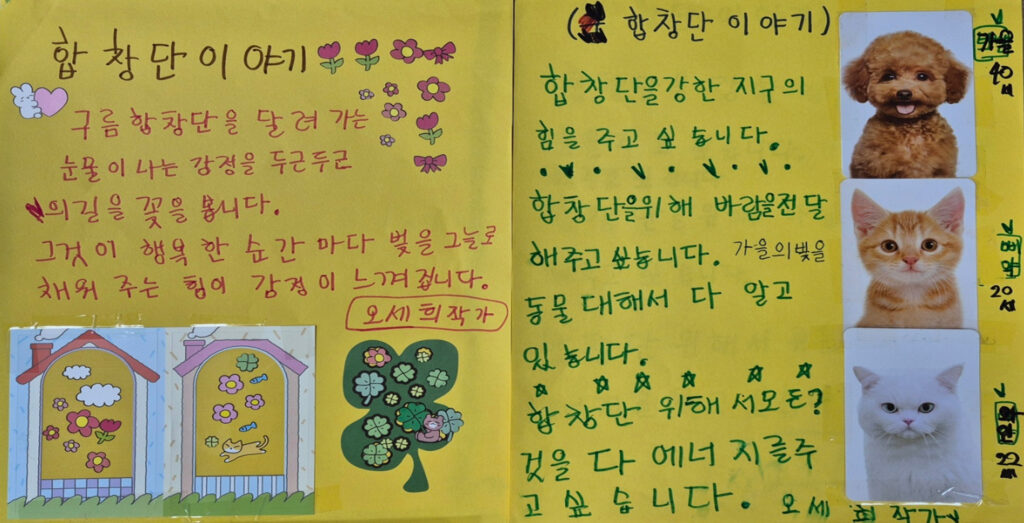 합창단이야기
구름합창단을 달려가는
눈물이 나는 감정을 두근두근
의길을 꽃을 봅니다.
그것이 행복한 순간마다 빛을 그늘로
채워 주는 힘이 감정이 느껴집니다.
오세희작가
(합창단이야기)
합창단을강한 지구의
힘을 주고 싶습니다.
합창단을위해 바람을전달
해주고싶습니다. 가을의빛을
동물대해서 다 알고
있습니다.
합창단 위해서모든?
것을 다 에너지를주
고싶습니다. 오세희작가
40
20
22